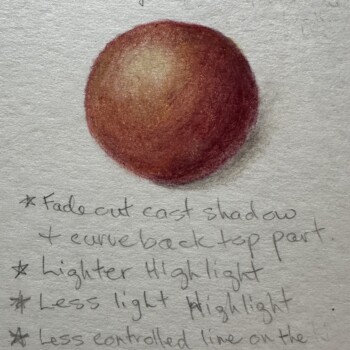 * Fade out cast shadow
+ curve back top part.
* Lighter Highlight
* Less light Highlight
* Less controlled line on the